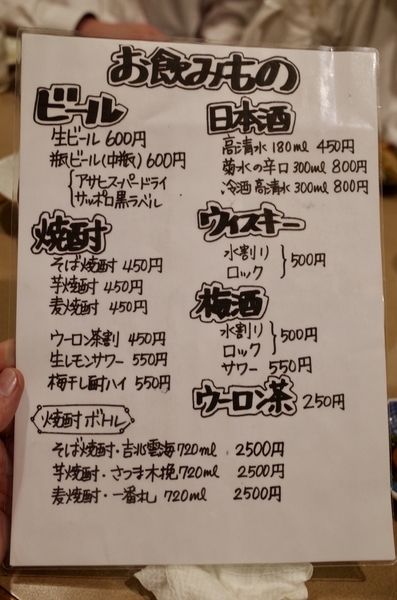 お飲みもの
ビール
生ビール 600円
瓶ビール(中瓶) 600円
アサヒスーパードライ
サッポロ黒ラベル
焼酎
そば焼酎 450円
芋焼酎 450円
麦焼酎 450円
ウーロン茶割 450円
生レモンサワー 550円
梅干し酎ハイ 550円
日本酒
高清水 180ml 450円
菊水の辛口 300ml 800円
冷酒 高清水 300ml 800円
ウィスキー
水割り
ロック
500円
梅酒
水割り
ロック
500円
サワー 550円
ウーロン茶 250円
焼酎ボトル
そば焼酎・吉兆雲海 720ml 2500円
芋焼酎・さつま木挽 720ml 2500円
麦焼酎・一番札 720ml 2500円